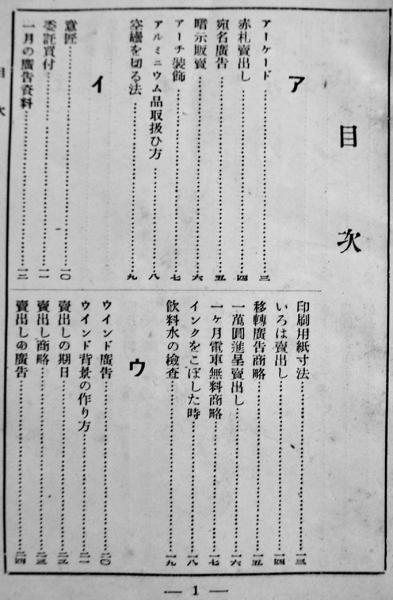 目次
ア
アーケード……三
赤札賣出し……四
宛名廣告……五
暗示販賣……六
アーチ装飾……七
アルミニウム品取扱ひ方……八
空罐を切る法……九
イ
意匠……一〇
委託買付……一一
一月の廣告資料……一二
印刷用紙寸法……一三
いろは賣出し……一四
移轉廣告商略……一五
一萬圓進呈賣出し……一六
一ヶ月電車無料商略……一七
インクをこぼした時……一八
飲料水の檢査……一九
ウ
ウインド廣告……二〇
ウインド背景の作り方……二一
賣出しの期日……二二
賣出し商略……二三
賣出しの廣告……二四
目次
— 1 —